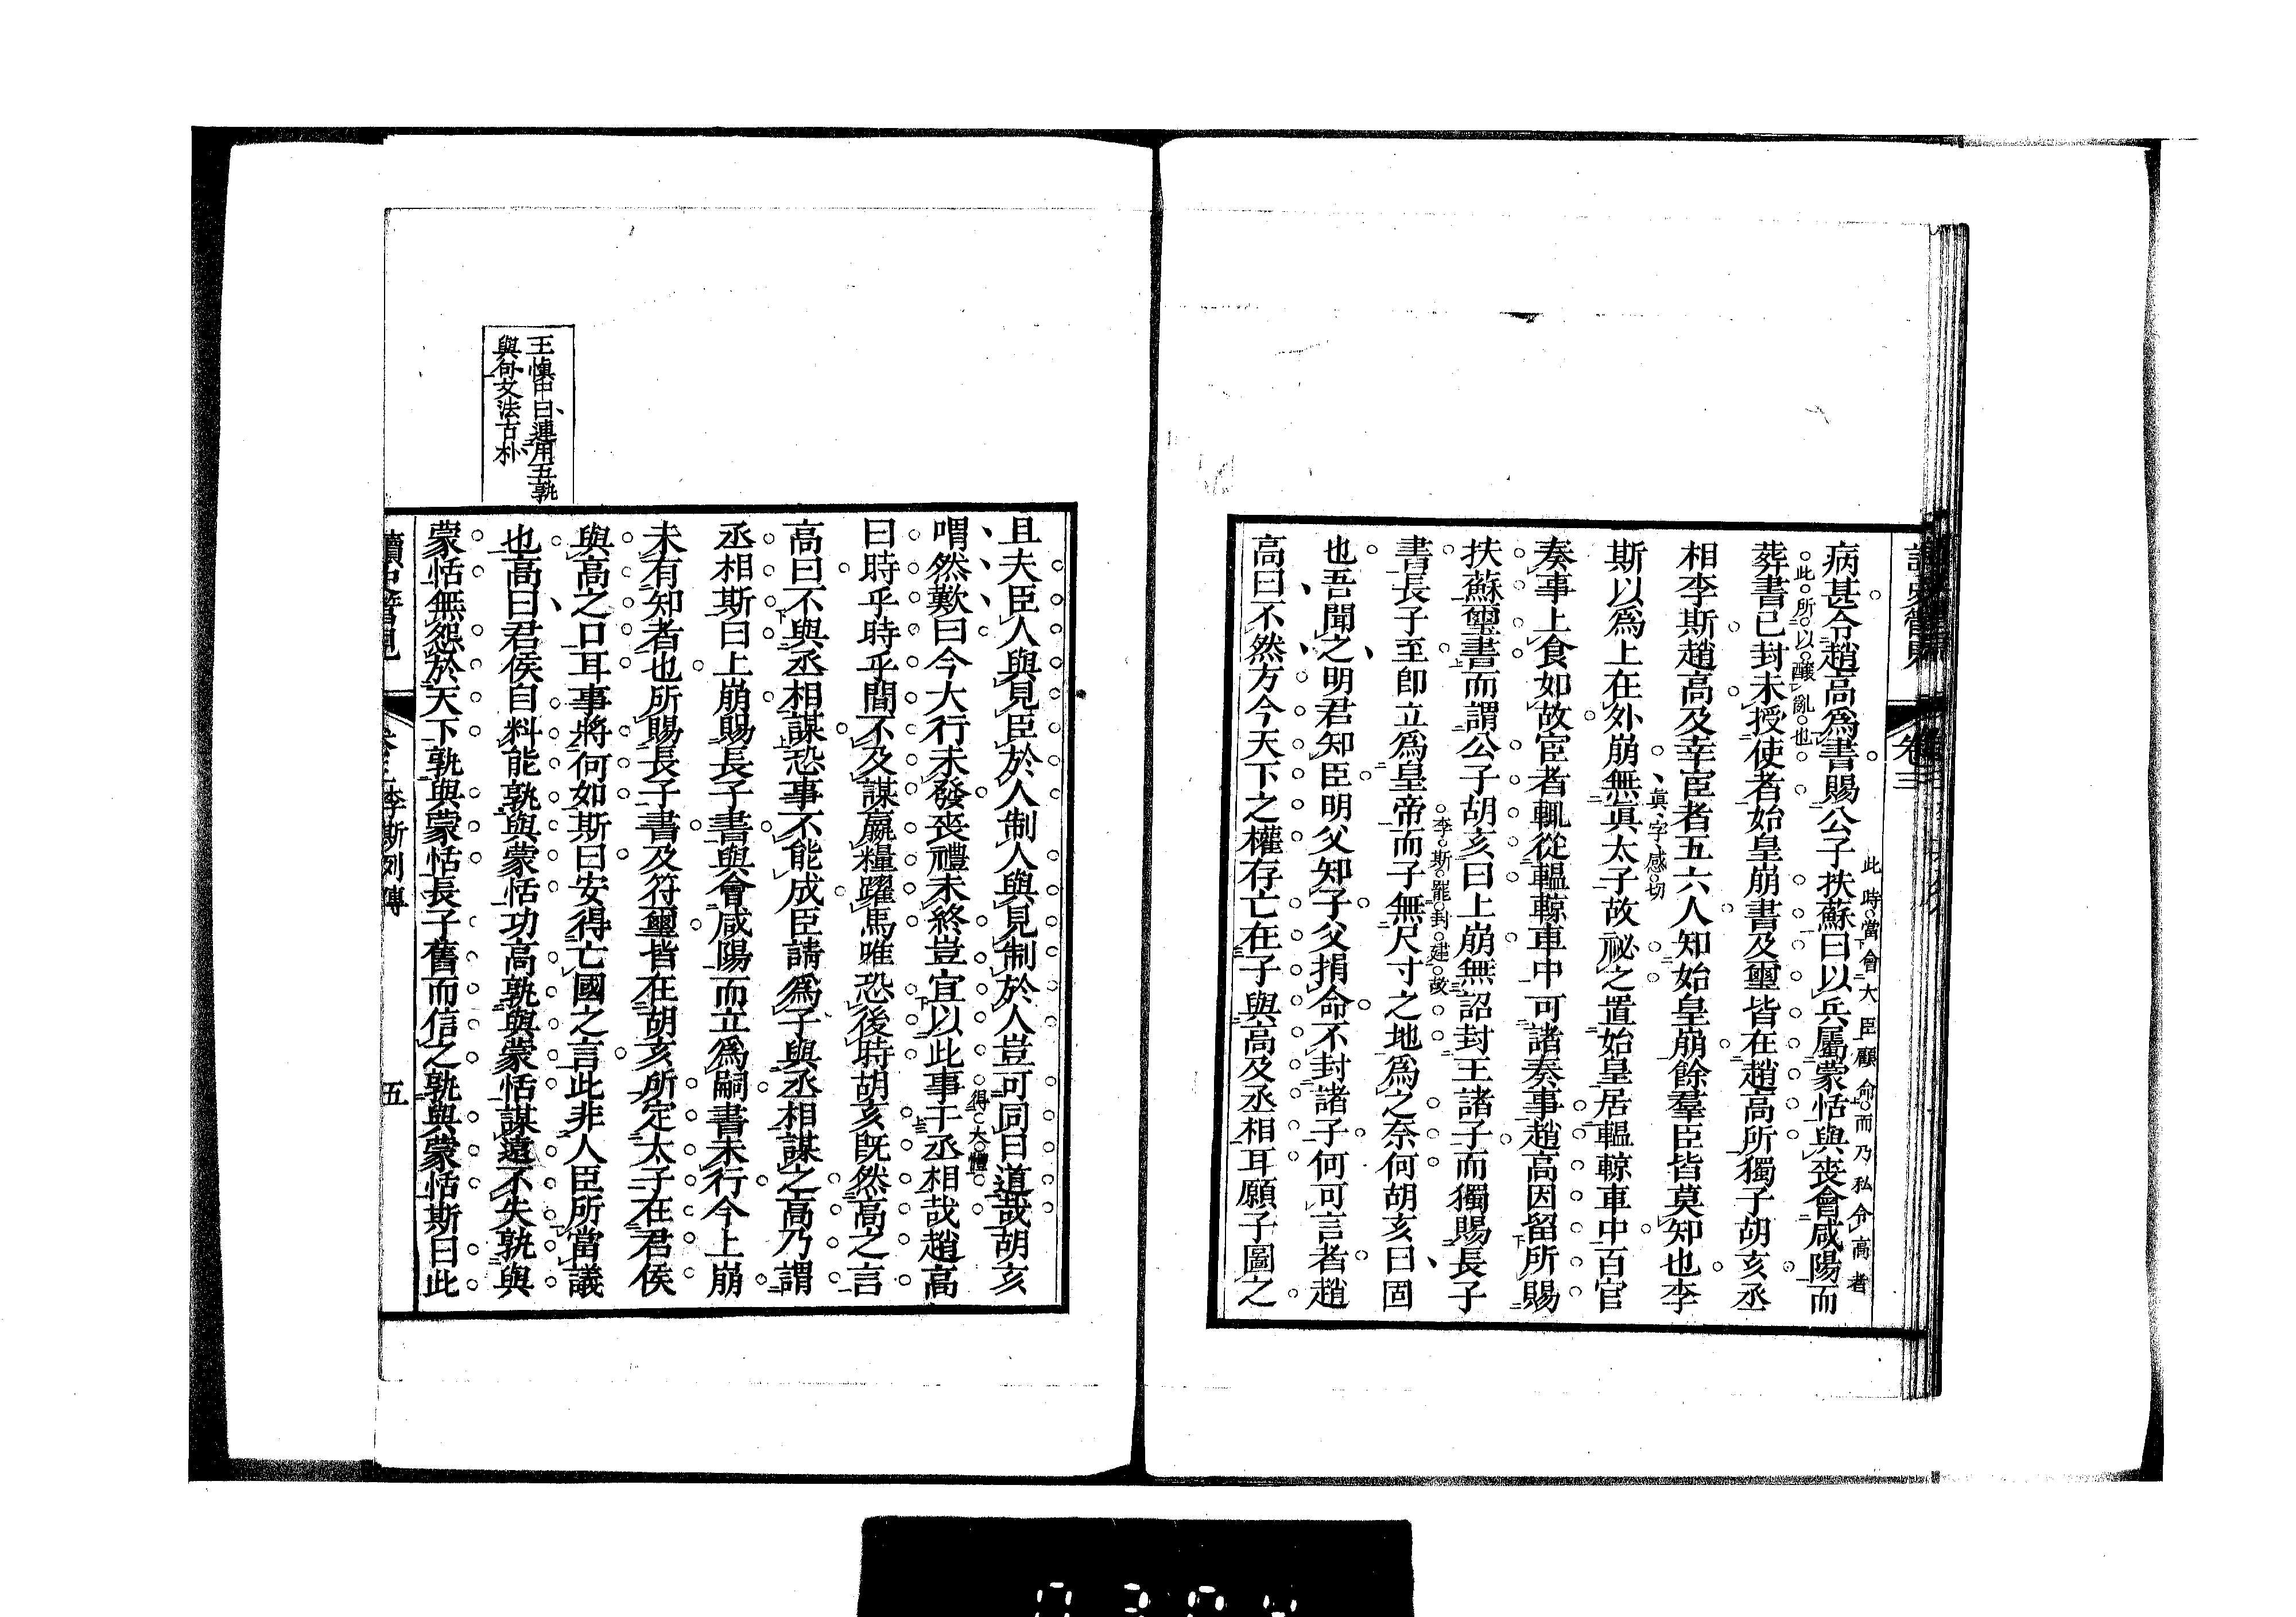 卷三
此時當會大臣顧命而乃私令高者
病甚令趙高爲書賜公子扶蘇曰以兵屬蒙恬與喪會咸陽而
此所以釀亂也
葬書已封未授使者始皇崩書及璽皆在趙高所獨子胡亥丞
相李斯趙高及幸宦者五六人知始皇崩餘羣臣皆莫知也李
眞字感切
斯以爲上在外崩無眞太子故祕之置始皇居轀輬車中百官
奏事上食如故宦者輒從轀輬車中可諸奏事趙高因留所賜
扶蘇璽書而謂公子胡亥曰上崩無詔封王諸子而獨賜長子
李斯罷封建故
書長子至卽立爲皇帝而子無尺寸之地爲之奈何胡亥曰固
也吾聞之明君知臣明父知子父捐命不封諸子何可言者趙
高曰不然方今天下之權存亡在子與高及丞相耳願子圖之
且夫臣人與見臣於人制人與見制於人豈可同日道哉胡亥
得大體
喟然歎曰今大行未發喪禮未終豈宜以此事干丞相哉趙高
曰時乎時乎間不及謀贏糧躍馬唯恐後時胡亥旣然高之言
高曰不與丞相謀恐事不能成臣請爲子與丞相謀之高乃謂
丞相斯曰上崩賜長子書與會咸陽而立爲嗣書未行今上崩
未有知者也所賜長子書及符璽皆在胡亥所定太子在君侯
與高之口耳事將何如斯曰安得亡國之言此非人臣所當議
王愼中曰連用五孰
與句文法古朴
也高曰君侯自料能孰與蒙恬功高孰與蒙恬謀遠不失孰與
蒙恬無怨於天下孰與蒙恬長子舊而信之孰與蒙恬斯曰此
李斯列傳
五